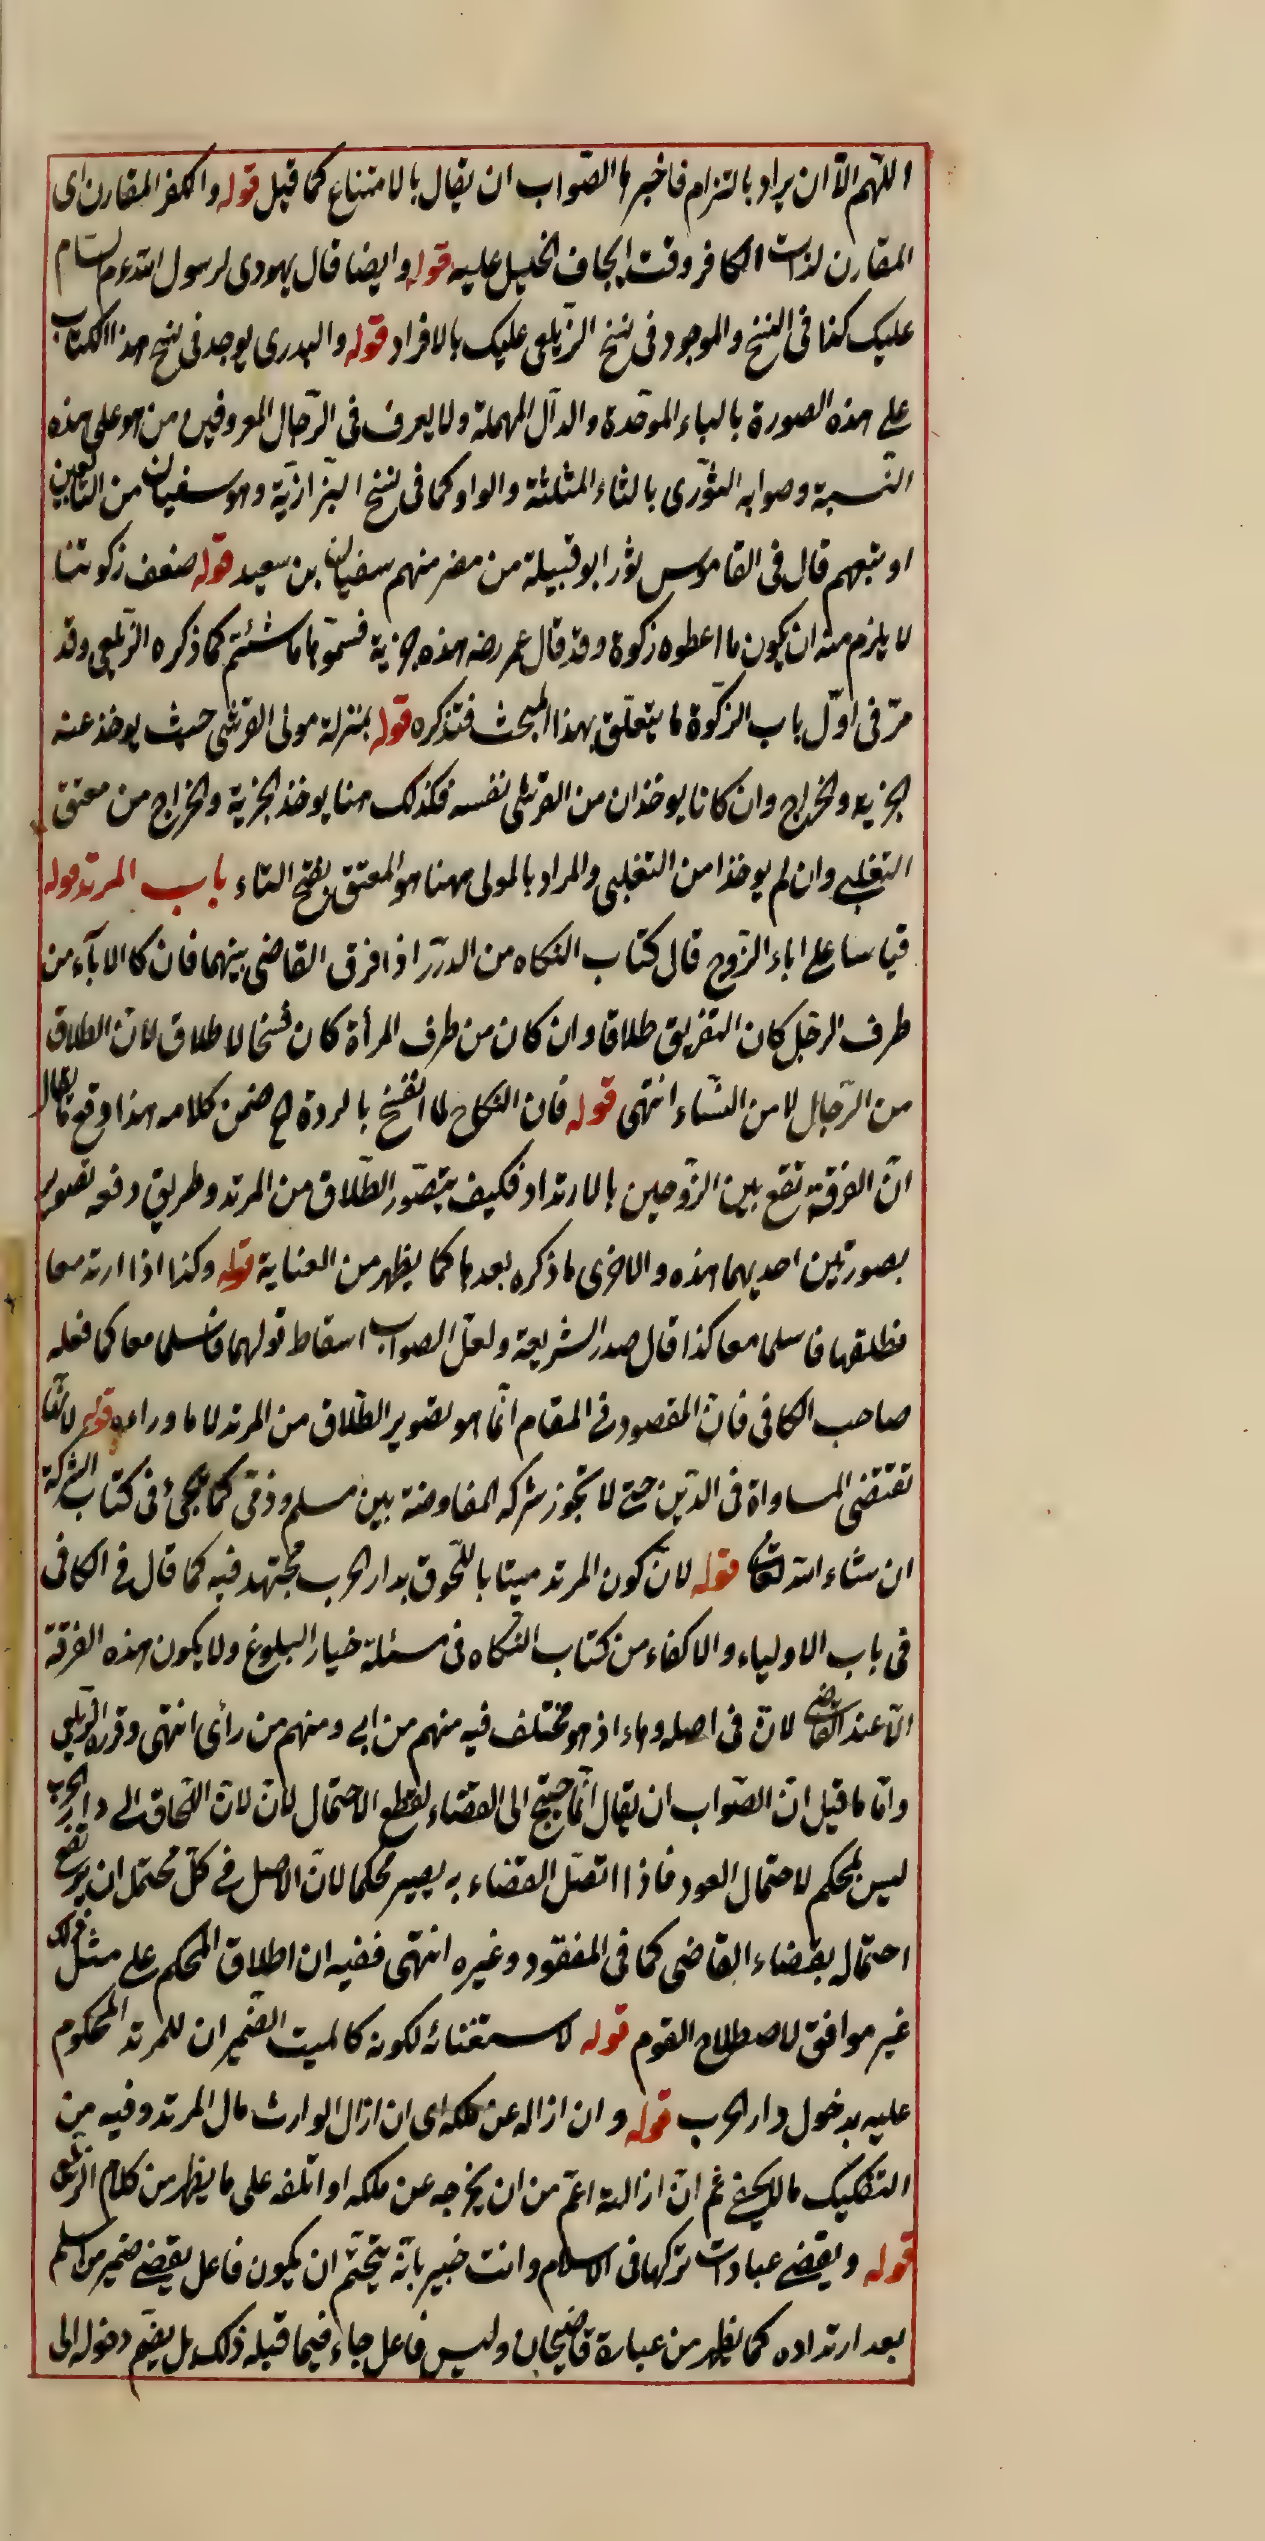 اللهم الا ان يراد بالتزام فاخبرها الصواب ان يقال بالامتناع كما قيل قوله والكفر المقارن اى
المقارن لذات الكافر وقت ايجاف الخيل عليه قوله وايضا قال يهودى لرسول الله عم السام
عليك كذا فى النسخ والموجود فى نسخ الزيلعى عليك بالافراد قوله والبدرى يوجد فى نسخ هذا الكتاب
على هذه الصورة بالباء الموحدة والدال المهملة ولا يعرف فى الرجال المعروفين من هو على هذه
النسبة وصوابه الثورى بالثاء المثلثة والواو كما فى نسخ البزازية وهو سفيان من التابعين
او تبعهم قال فى القاموس ثور ابو قبيلة من مضر منهم سفيان بن سعيد قوله ضعف زكوتنا
لا يلزم منه ان يكون ما اعطوه زكوة وقد قال عمر رضه هذه جزية فسموها ما شئتم كما ذكره الزيلعى وقد
مر فى اول باب الزكوة ما يتعلق بهذا المبحث فتذكره قوله بمنزلة مولى القرشى حيث يوخذ عنه
الجزيه والخراج وان كانا يوخذان من القرشى نفسه فكذلك هنا يوخذ الجزية والخراج من معتق
التغلبى وان لم يوخذا من التغلبى والمراد بالمولى ههنا هو المعتق بفتح التاء باب المرتد قوله
قياسا على اباء الزوج قال كتاب النكاه من الدرر اذا فرق القاضى بينهما فان كا الاباء من
طرف الرجل كان التفريق طلاقا وان كان من طرف المرأة كان فسخا لا طلاق لان الطلاق
من الرجال لا من النساء انتهى قوله فان النكاح لما انفسخ بالردة الخ ضمن كلامه هذا دفع ما يقال
ان الفرقة تقع بين الزوجين بالارتداد فكيف يتصور الطلاق من المرتد وطريق دفعه تصوير
بصورتين احديهما هذه والاخرى ما ذكره بعدها كما يظهر من العناية قوله وكذا اذا ارتد معا
فطلقها فاسلما معا كذا قال صدر الشريعة ولعل الصواب اسقاط قولهما فاسلما معا كما فعله
صاحب الكافى فان المقصود فى المقام انما هو تصوير الطلاق من المرتد لا ما وراءه قوله لانها
تقتضى المساواة فى الدين حتى لا تجوز شركه المفاوضة بين مسلم وذمى كما يجئ فى كتاب الشركة
ان شاء الله تعالى قوله لان كون المرتد ميتا باللحوق بدار الحرب مجتهد فيه كما قال فى الكافى
فى باب الاولياء والاكفاء من كتاب النكاه فى مسئلة خيار البلوغ ولا يكون هذه الفرقة
الا عند القاضى لان فى اصله وهاء اذ هو مختلف فيه منهم من ابى ومنهم من رأى انتهى وقرره الزيلعى
واما ما قيل ان الصواب ان يقال انما احتيج الى القضاء لقطع الاحتمال لان لان اللحاق الى دار الحرب
ليس بمحكم لاحتمال العود فاذا اتصل القضاء به يصير محكما لان الاصل فى كل محتمل ان يرتفع
احتماله بقضاء القاضى كما فى المفقود وغيره انتهى ففيه ان اطلاق المحكم على مثل ذلك
غير موافق لاصطلاح القوم قوله لاستغنائه لكونه كالميت الضمير ان للمرتد المحكوم
عليه بدخول دار الحرب قوله وان ازاله عن ملكه اى ان ازال الوارث مال المرتد وفيه من
التفكيك ما لا يخفى ثم ان ازالته اعم من ان يخرجه عن ملكه او اتلفه على ما يظهر من كلام الزيلعى
قوله ويقضى عبادات تركها فى الاسلام وانت خبير بانه يتحتم ان يكون فاعل يقضى ضمير من اسلم
بعد ارتداده كما يظهر من عبارة قاضيخان وليس فاعل جاء فيما قبله ذلك بل يقم دخوله الى